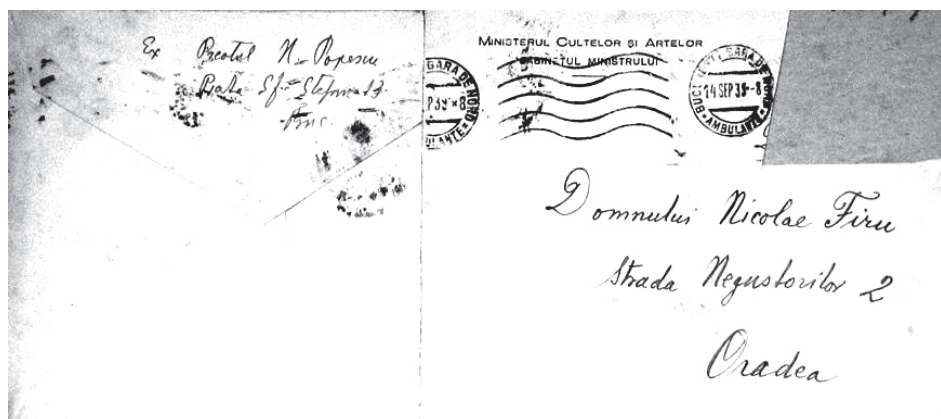 Ex Preotul N. Popescu
Piața Sf. Ștefan 13
Buc.
MINISTERUL CULTELOR ȘI ARTELOR
CABINETUL MINISTRULUI
GARA DE NORD
AMBULANTE
BUC GARA DE NORD
14 SEP 39 - 8
AMBULANTE
Domnului Nicolae Firu
Strada Negustorilor 2
Oradea